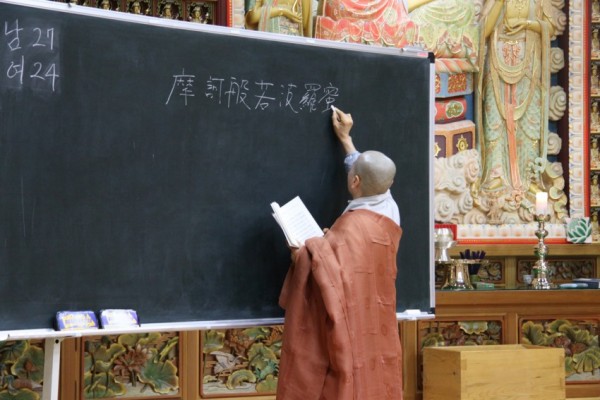 남 27
여 24
摩訶般若波羅蜜